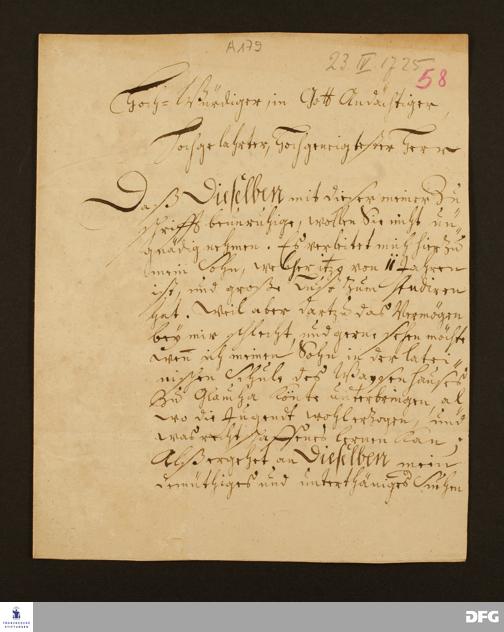 A 179
23. IV. 1725
58
Hoch-Würdiger, in Gott Andächtiger,
Hochgelahrter, Hochgeneigtester Herr
Daß Dieselben mit dieser meiner Zu
schrifft beunruhige, wollen Sie nicht un¬
gnädig nehmen. Es verbitet mich hierzu
mein Sohn, welcher itzo von 11 Jahren
ist, und große Lust zum studiren
hat. Weil aber dartzu das Vermögen
bey mir schlecht, und gerne sehen möchte
wen̅ ich meinen Sohn in der latei¬
nischen Schule des Waysenhauses
zu Glaucha könte unterbringen al
wo die Jugendt wohl erzogen, und
was rechtschaffenes lernen kan,
Alß ergehet an Dieselben mein
demüthiges und unterthäniges Suchen
FRANCKESCHE STIFTUNGEN
DFG